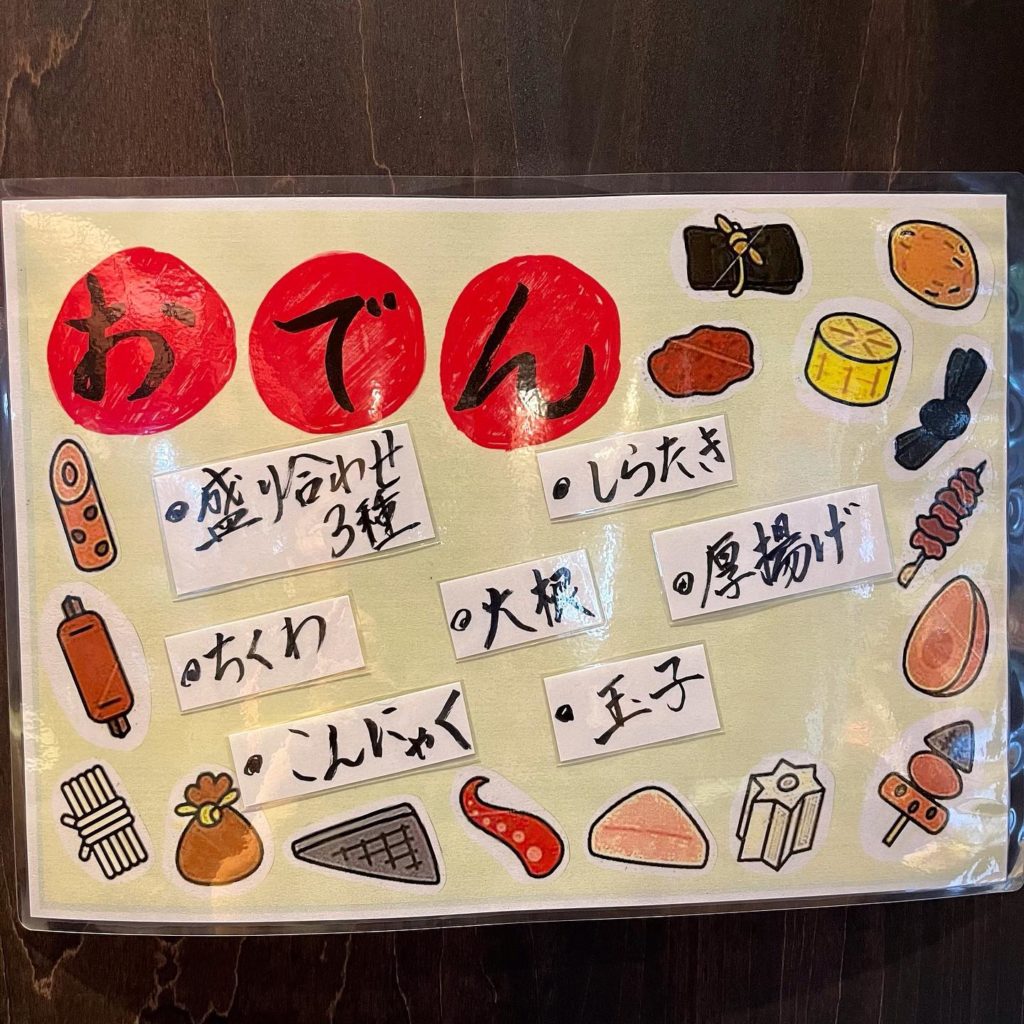 おでん
•盛り合わせ
3種
•しらたき
•厚揚げ
•大根
•ちくわ
•玉子
•こんにゃく